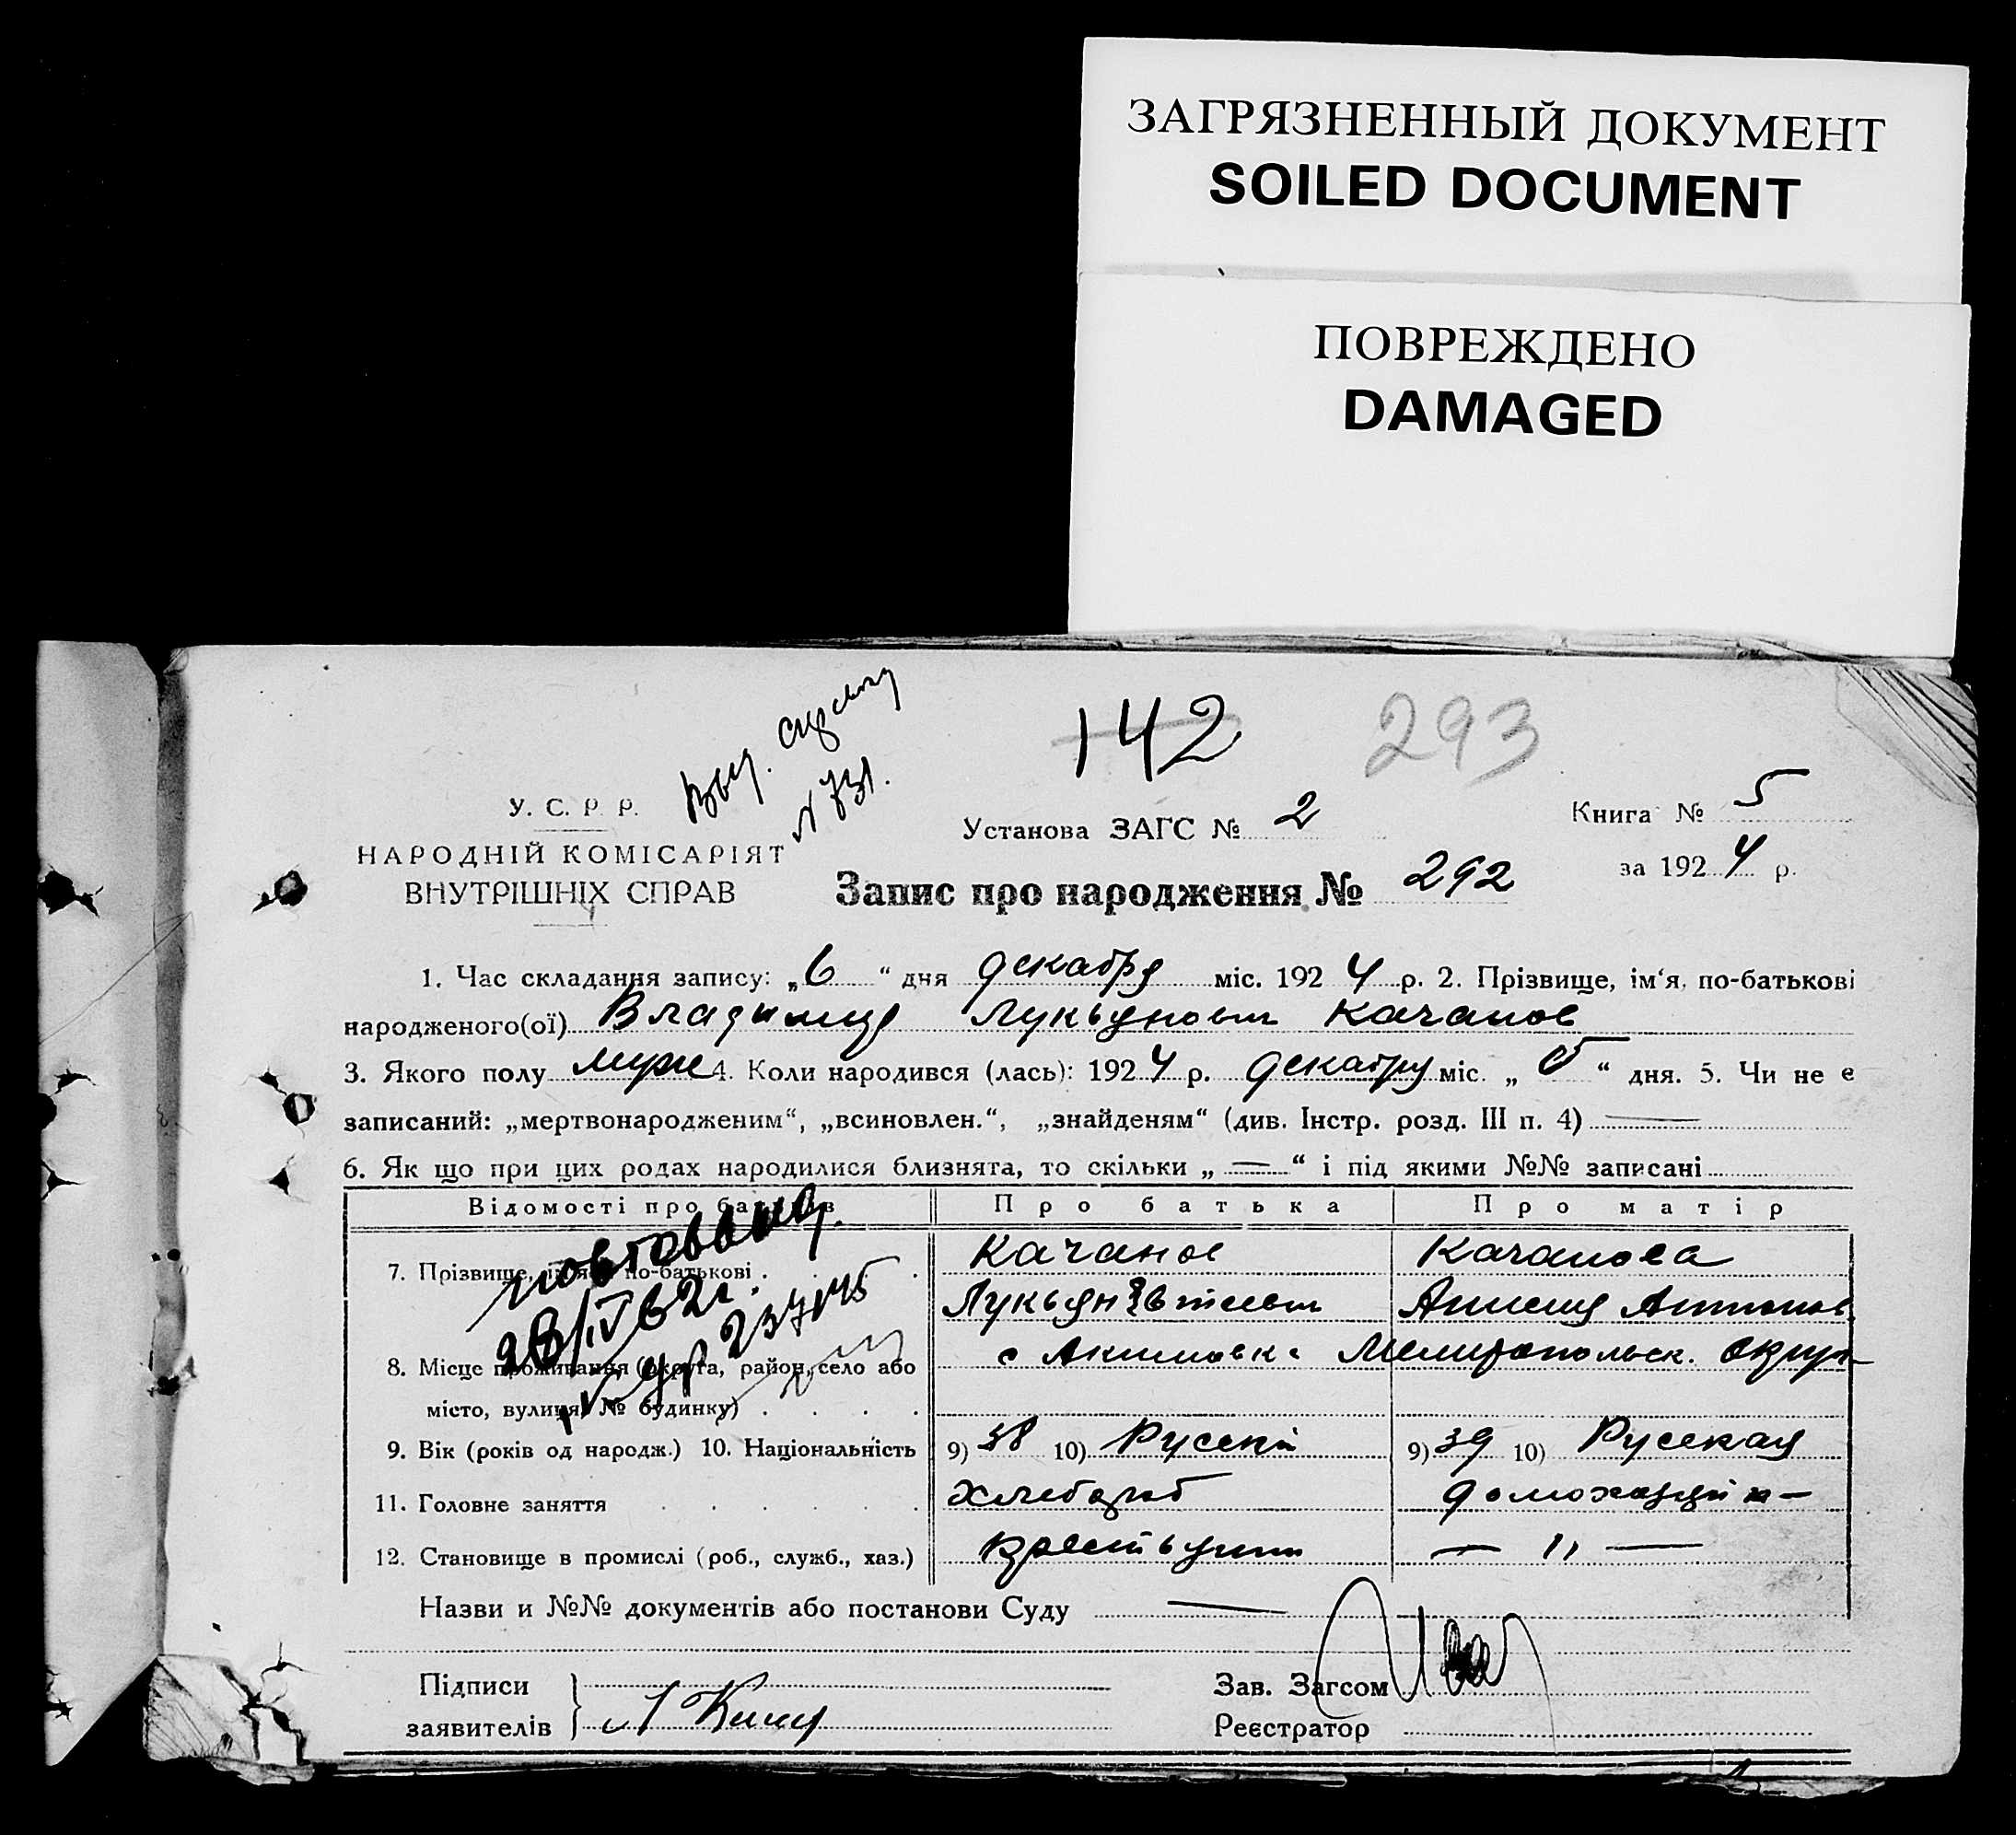 ЗАГРЯЗНЕННЫЙ ДОКУМЕНТ
SOILED DOCUMENT
ПОВРЕЖДЕНО
DAMAGED
142 293
№ 731.
У. С. Р. Р.
НАРОДНІЙ КОМІСАРІЯТ
ВНУТРІШНІХ СПРАВ
Установа ЗАГС № 2
Книга № 5
за 1924 р.
Запис про народження № 292
1. Час складання запису: „6“ дня декабря міс. 1924 р. 2. Прізвище, ім‘я, по-батькові
народженого(ої) Владимир Лукьянович Качанов
3. Якого полу муж 4. Коли народився (лась): 1924 р. декабря міс. „5“ дня. 5. Чи не є
записаний: „мертвонародженим“, „всиновлен.“, „знайденям“ (див. Інстр. розд. III п. 4) —
6. Як що при цих родах народилися близнята, то скільки „—“ і під якими №№ записані
Відомості про батьків Про батька Про матір
повторно
28/IV 62г.
237145
7. Прізвище, ім‘я, по-батькові Качанов Качанова
Лукьян
8. Місце проживання (округа, район, село або с Акимовка Мелитопольск. округ
місто, вулиця, № будинку)
9. Вік (років од народж.) 10. Національність 9) 38 10) Русский 9) 39 10) Русская
11. Головне заняття Хлебороб домохозяйк
12. Становище в промислі (роб., служб., хаз.) крестьянин — " —
Назви и №№ документів або постанови Суду —
Підписи
заявителів
Зав. Загсом
Реєстратор